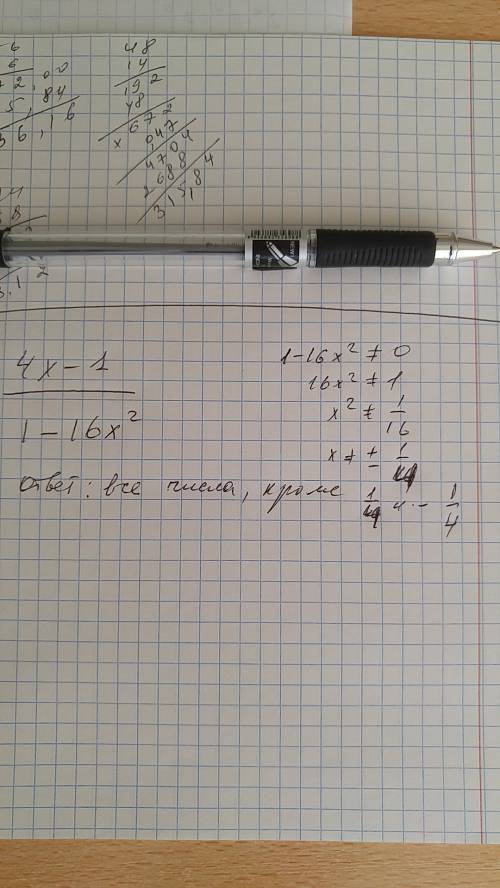 6
6
72,00
5,84
36,16
48
14
192
48
672
× 0,47
4704
2688
315,84
4x - 1
1 - 16x²
1 - 16x² ≠ 0
16x² ≠ 1
x² ≠ 1/16
x ≠ ± 1/4
ответ: все числа, кроме 1/4 и - 1/4